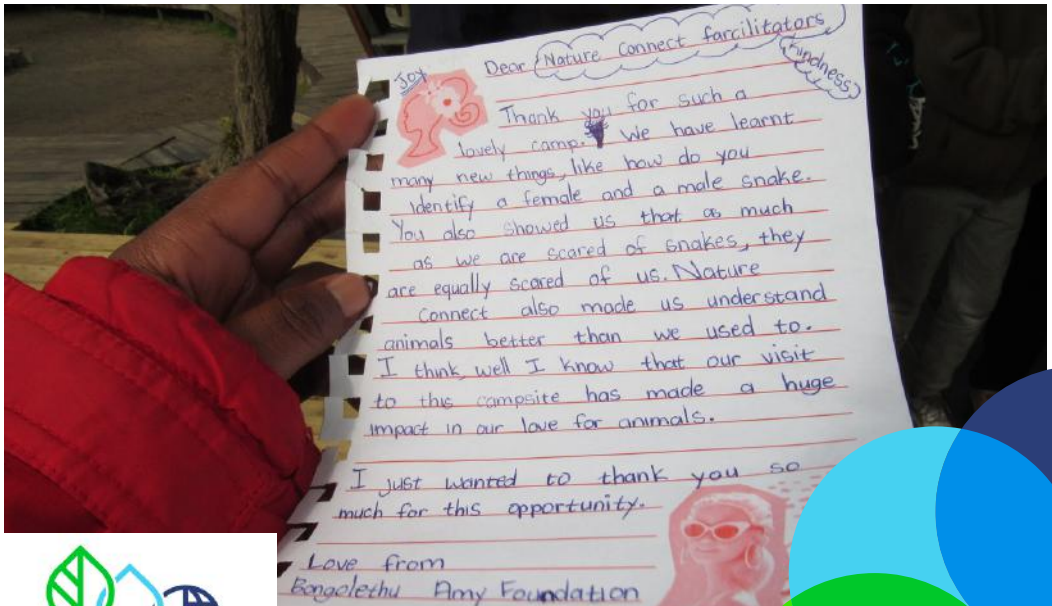 Joy
Dear Nature Connect farcilitators
kindness
Thank you for such a
lovely camp. We have learnt
many new things, like how do you
Identify a female and a male snake.
You also showed us that as much
as we are scared of snakes, they
are equally scared of us. Nature
Connect also made us understand
animals better than we used to.
I think, well I know that our visit
to this campsite has made a huge
impact in our love for animals.
I just wanted to thank you so
much for this opportunity.
Love from
Bongolethu Amy Foundation